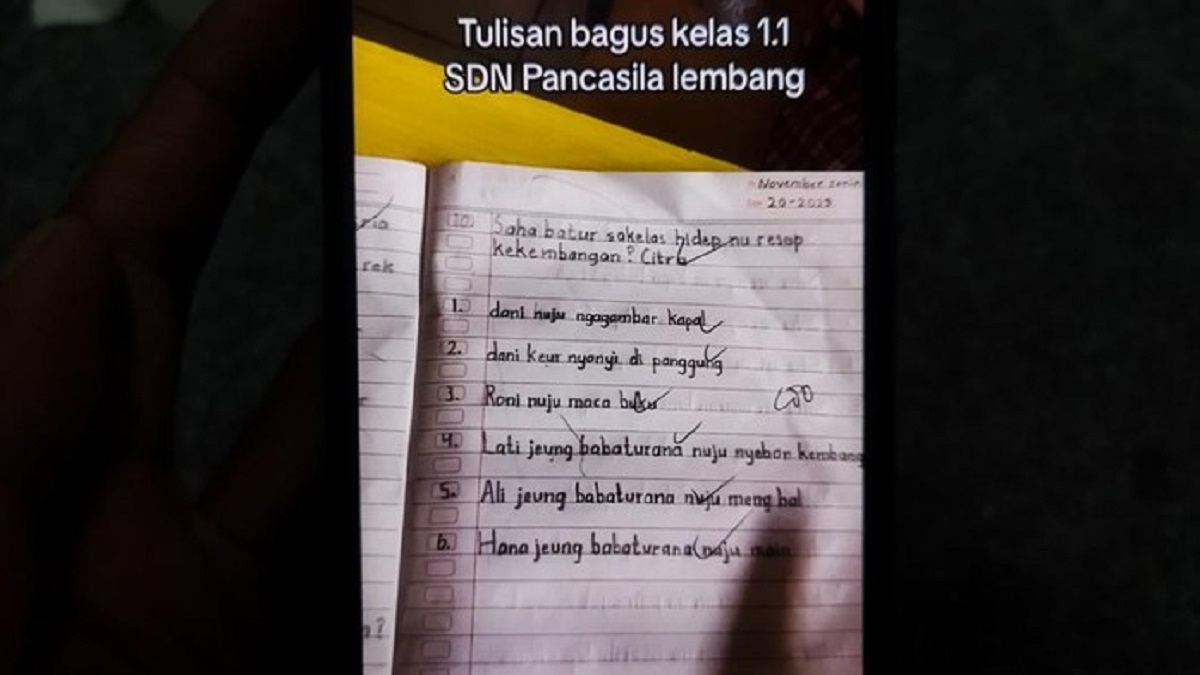 Tulisan bagus kelas 1.1
SDN Pancasila lembang
November senin
20-2023
ria
10. Saha batur sakelas hidep nu resep
kekembangan? Citra
rek
1. dani nuju ngagambar kapal
2. dani keur nyanyi di panggung
3. Roni nuju maca buku
100
4. Lati jeung babaturana nuju nyebor kembang
5. Ali jeung babaturana nuju meng bal
6. Hana jeung babaturana nuju
?